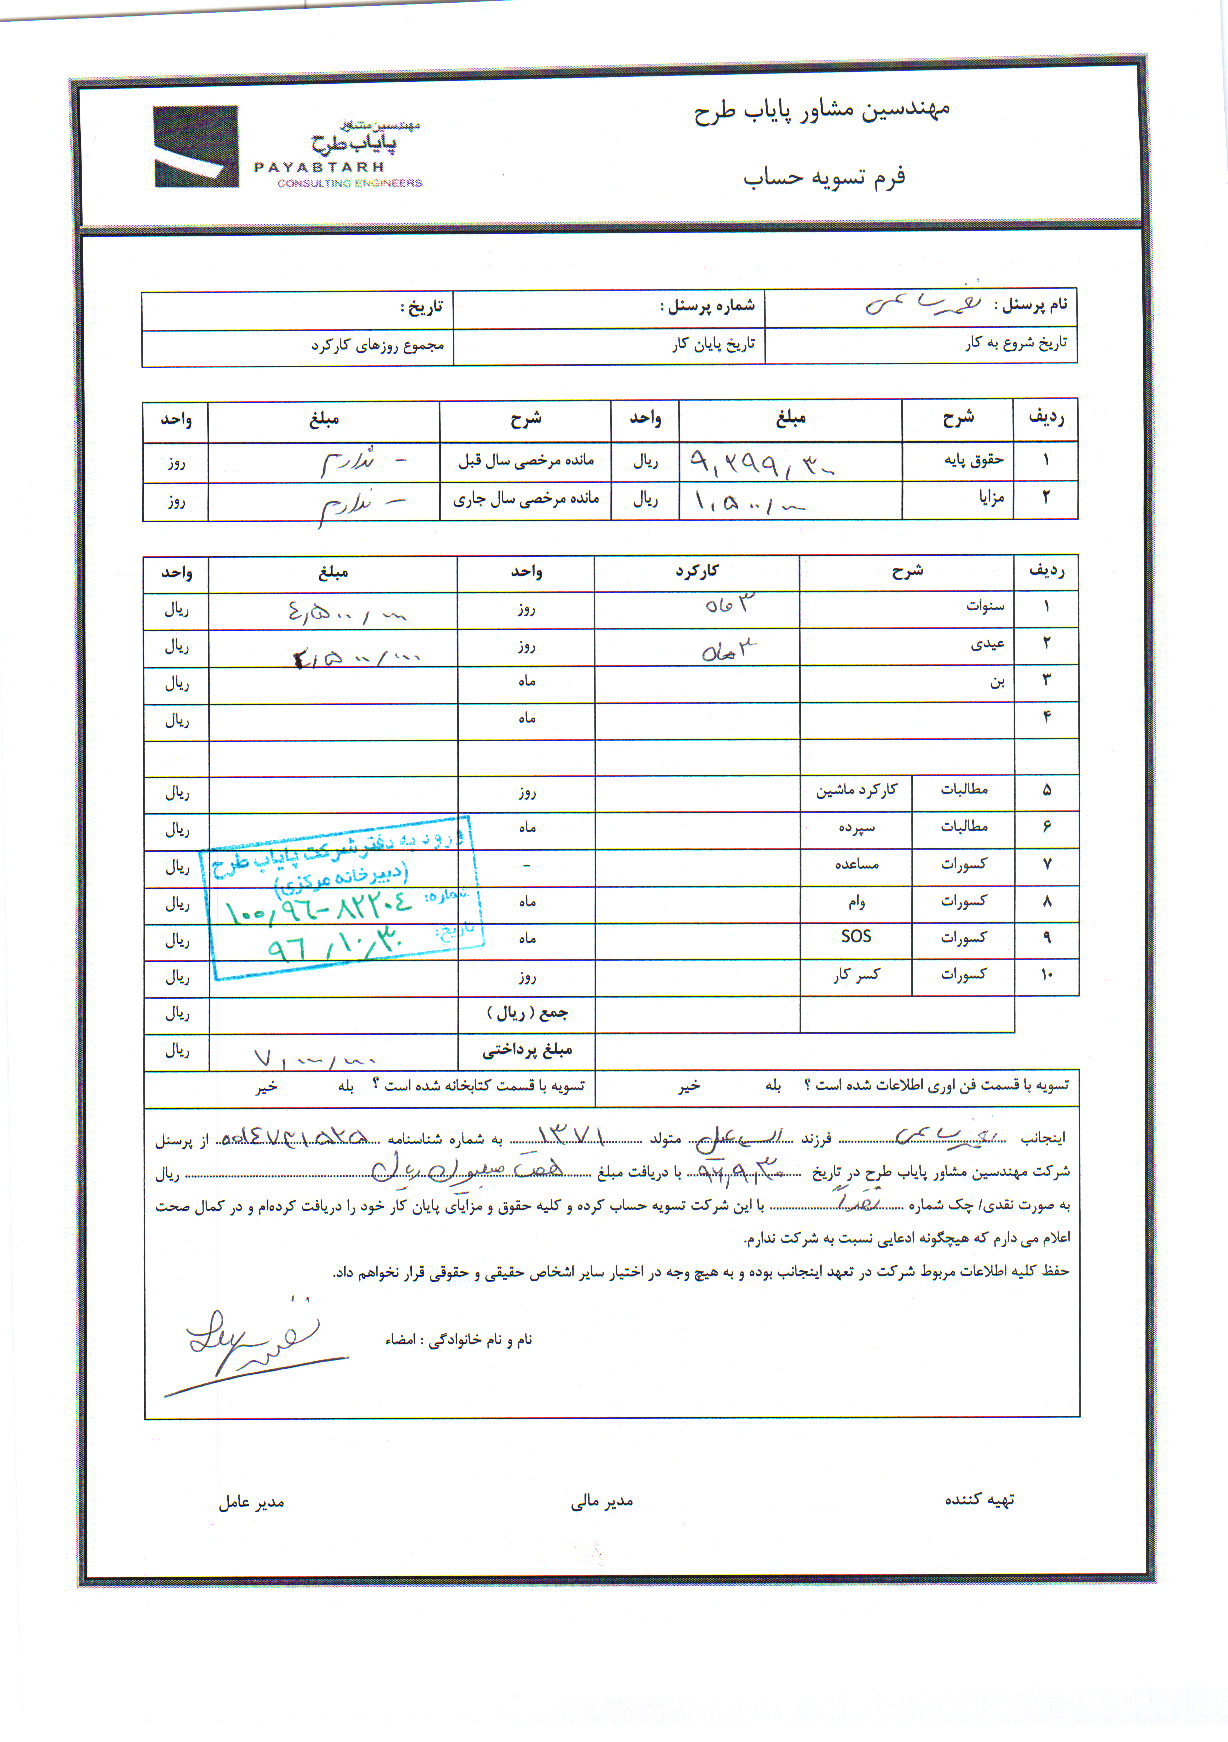 مهندسین مشاور پایاب طرح
مهندسین مشاور
پایاب طرح
PAYABTARH
CONSULTING ENGINEERS
فرم تسویه حساب
نام پرسنل : شماره پرسنل : تاریخ :
تاریخ شروع به کار تاریخ پایان کار مجموع روزهای کارکرد
ردیف شرح مبلغ واحد شرح مبلغ واحد
۱ حقوق پایه ۹,۲۹۹/۳۰ ریال مانده مرخصی سال قبل - ندارم روز
۲ مزایا ۱,۵۰۰/۰۰۰ ریال مانده مرخصی سال جاری - ندارم روز
ردیف شرح کارکرد واحد مبلغ واحد
۱ سنوات ۳ ماه روز ٤,۵۰۰/۰۰۰ ریال
۲ عیدی ۳ ماه روز ۲,۵۰۰/۰۰۰ ریال
۳ بن ماه ریال
۴ ماه ریال
۵ مطالبات کارکرد ماشین روز ریال
۶ مطالبات سپرده ماه ریال
۷ کسورات مساعده - ریال
۸ کسورات وام ماه ریال
۹ کسورات SOS ماه ریال
۱۰ کسورات کسر کار روز ریال
ورود به دفتر شرکت پایاب طرح
(دبیرخانه مرکزی)
شماره: ۱۰۰/۹٦-۸۲۲۰٤
تاریخ: ۹٦/۱۰/۳۰
جمع ( ریال ) ریال
مبلغ پرداختی ۷,۰۰۰/۰۰۰ ریال
تسویه با قسمت فن اوری اطلاعات شده است ؟ بله خیر تسویه با قسمت کتابخانه شده است ؟ بله خیر
اینجانب فرزند متولد ۱۳۷۱ به شماره شناسنامه ۰۰۱٤۷۳۱۵۲۵ از پرسنل
شرکت مهندسین مشاور پایاب طرح در تاریخ ۹٦,۹,۳۰ با دریافت مبلغ هفت میلیون ریال ریال
به صورت نقدی/ چک شماره نقداً با این شرکت تسویه حساب کرده و کلیه حقوق و مزایای پایان کار خود را دریافت کرده‌ام و در کمال صحت
اعلام می دارم که هیچگونه ادعایی نسبت به شرکت ندارم.
حفظ کلیه اطلاعات مربوط شرکت در تعهد اینجانب بوده و به هیچ وجه در اختیار سایر اشخاص حقیقی و حقوقی قرار نخواهم داد.
نام و نام خانوادگی : امضاء
تهیه کننده مدیر مالی مدیر عامل